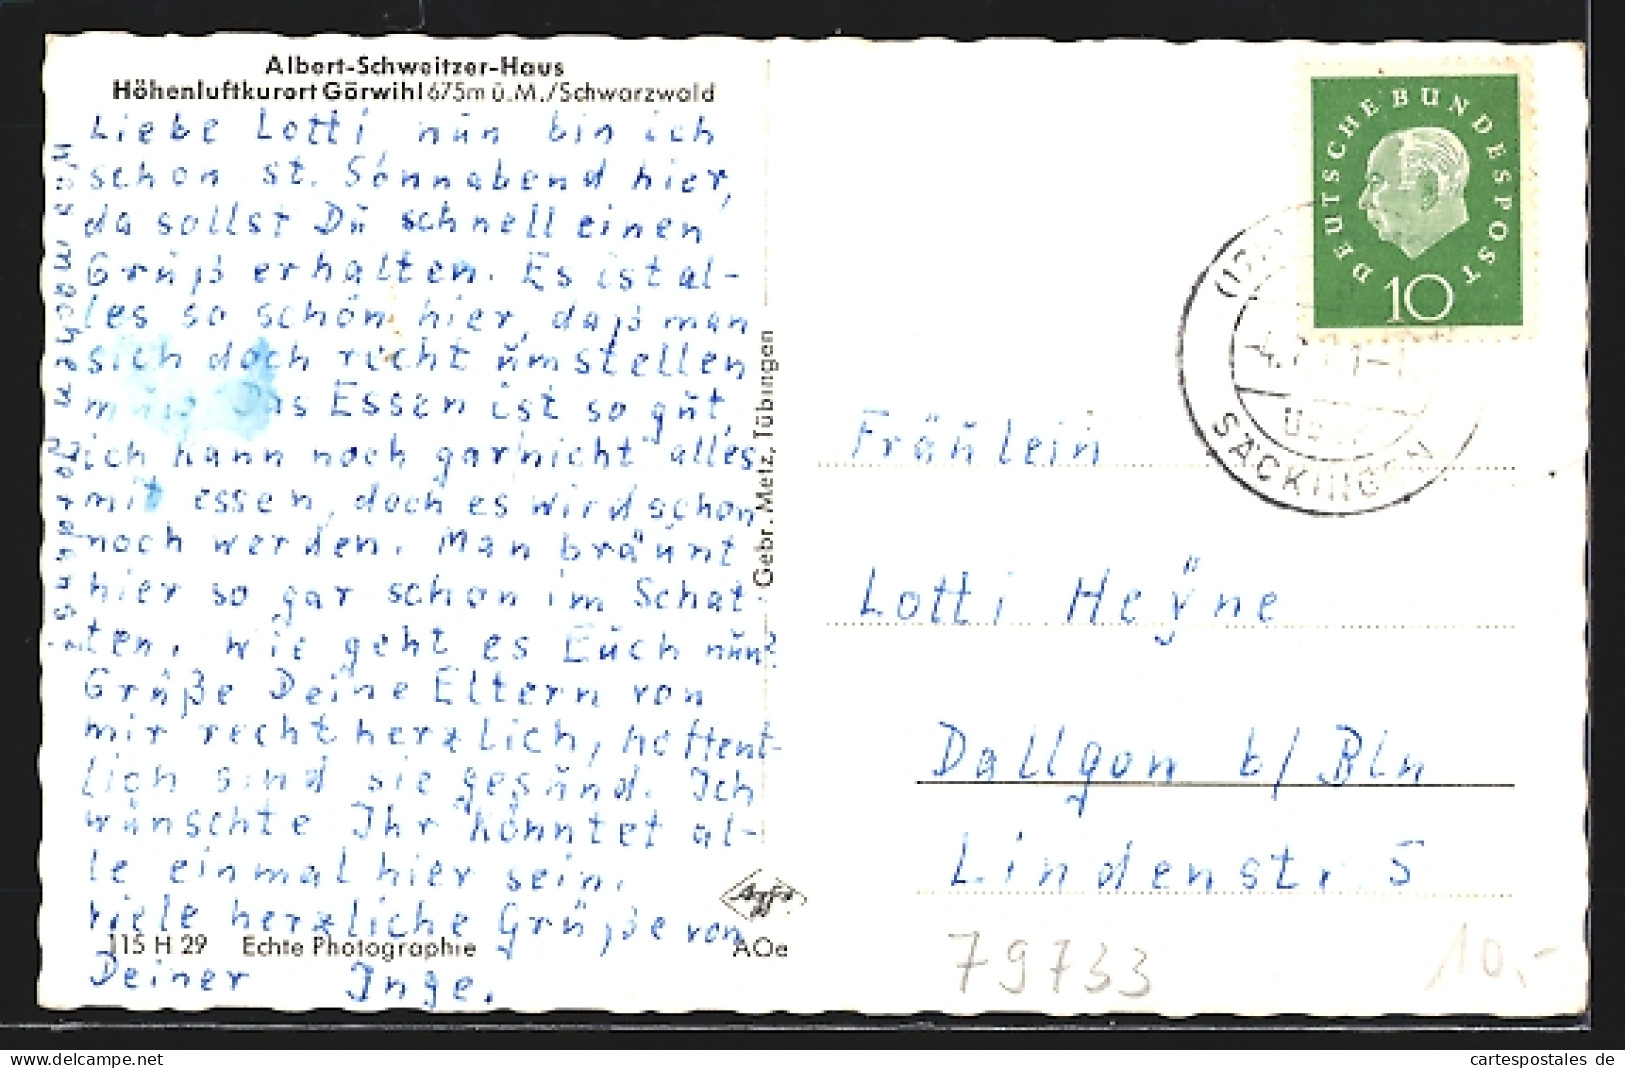 Albert-Schweitzer-Haus
Höhenluftkurort Görwihl 675m ü.M./Schwarzwald
Liebe Lotti nun bin ich
schon st. Sonnabend hier,
da sollst Du schnell einen
Gruß erhalten. Es ist al-
les so schön hier, daß man
sich doch recht umstellen
muß. Das Essen ist so gut,
ich kann noch garnicht alles
mit essen, doch es wird schon
noch werden. Man bräunt
hier so gar schon im Schat-
ten. Wie geht es Euch nun?
Grüße Deine Eltern von
mir recht herzlich, hoffent-
lich sind sie gesund. Ich
wünschte Ihr könntet al-
le einmal hier sein.
Viele herzliche Grüße von
Deiner Inge.
115 H 29 Echte Photographie
Agfa
AOe
Gebr. Metz, Tübingen
DEUTSCHE BUNDESPOST
10
SÄCKINGEN
Fräulein
Lotti Heyne
Dallgow b/ Bln
Lindenstr. 5
79733
10,-
cartespostales.de